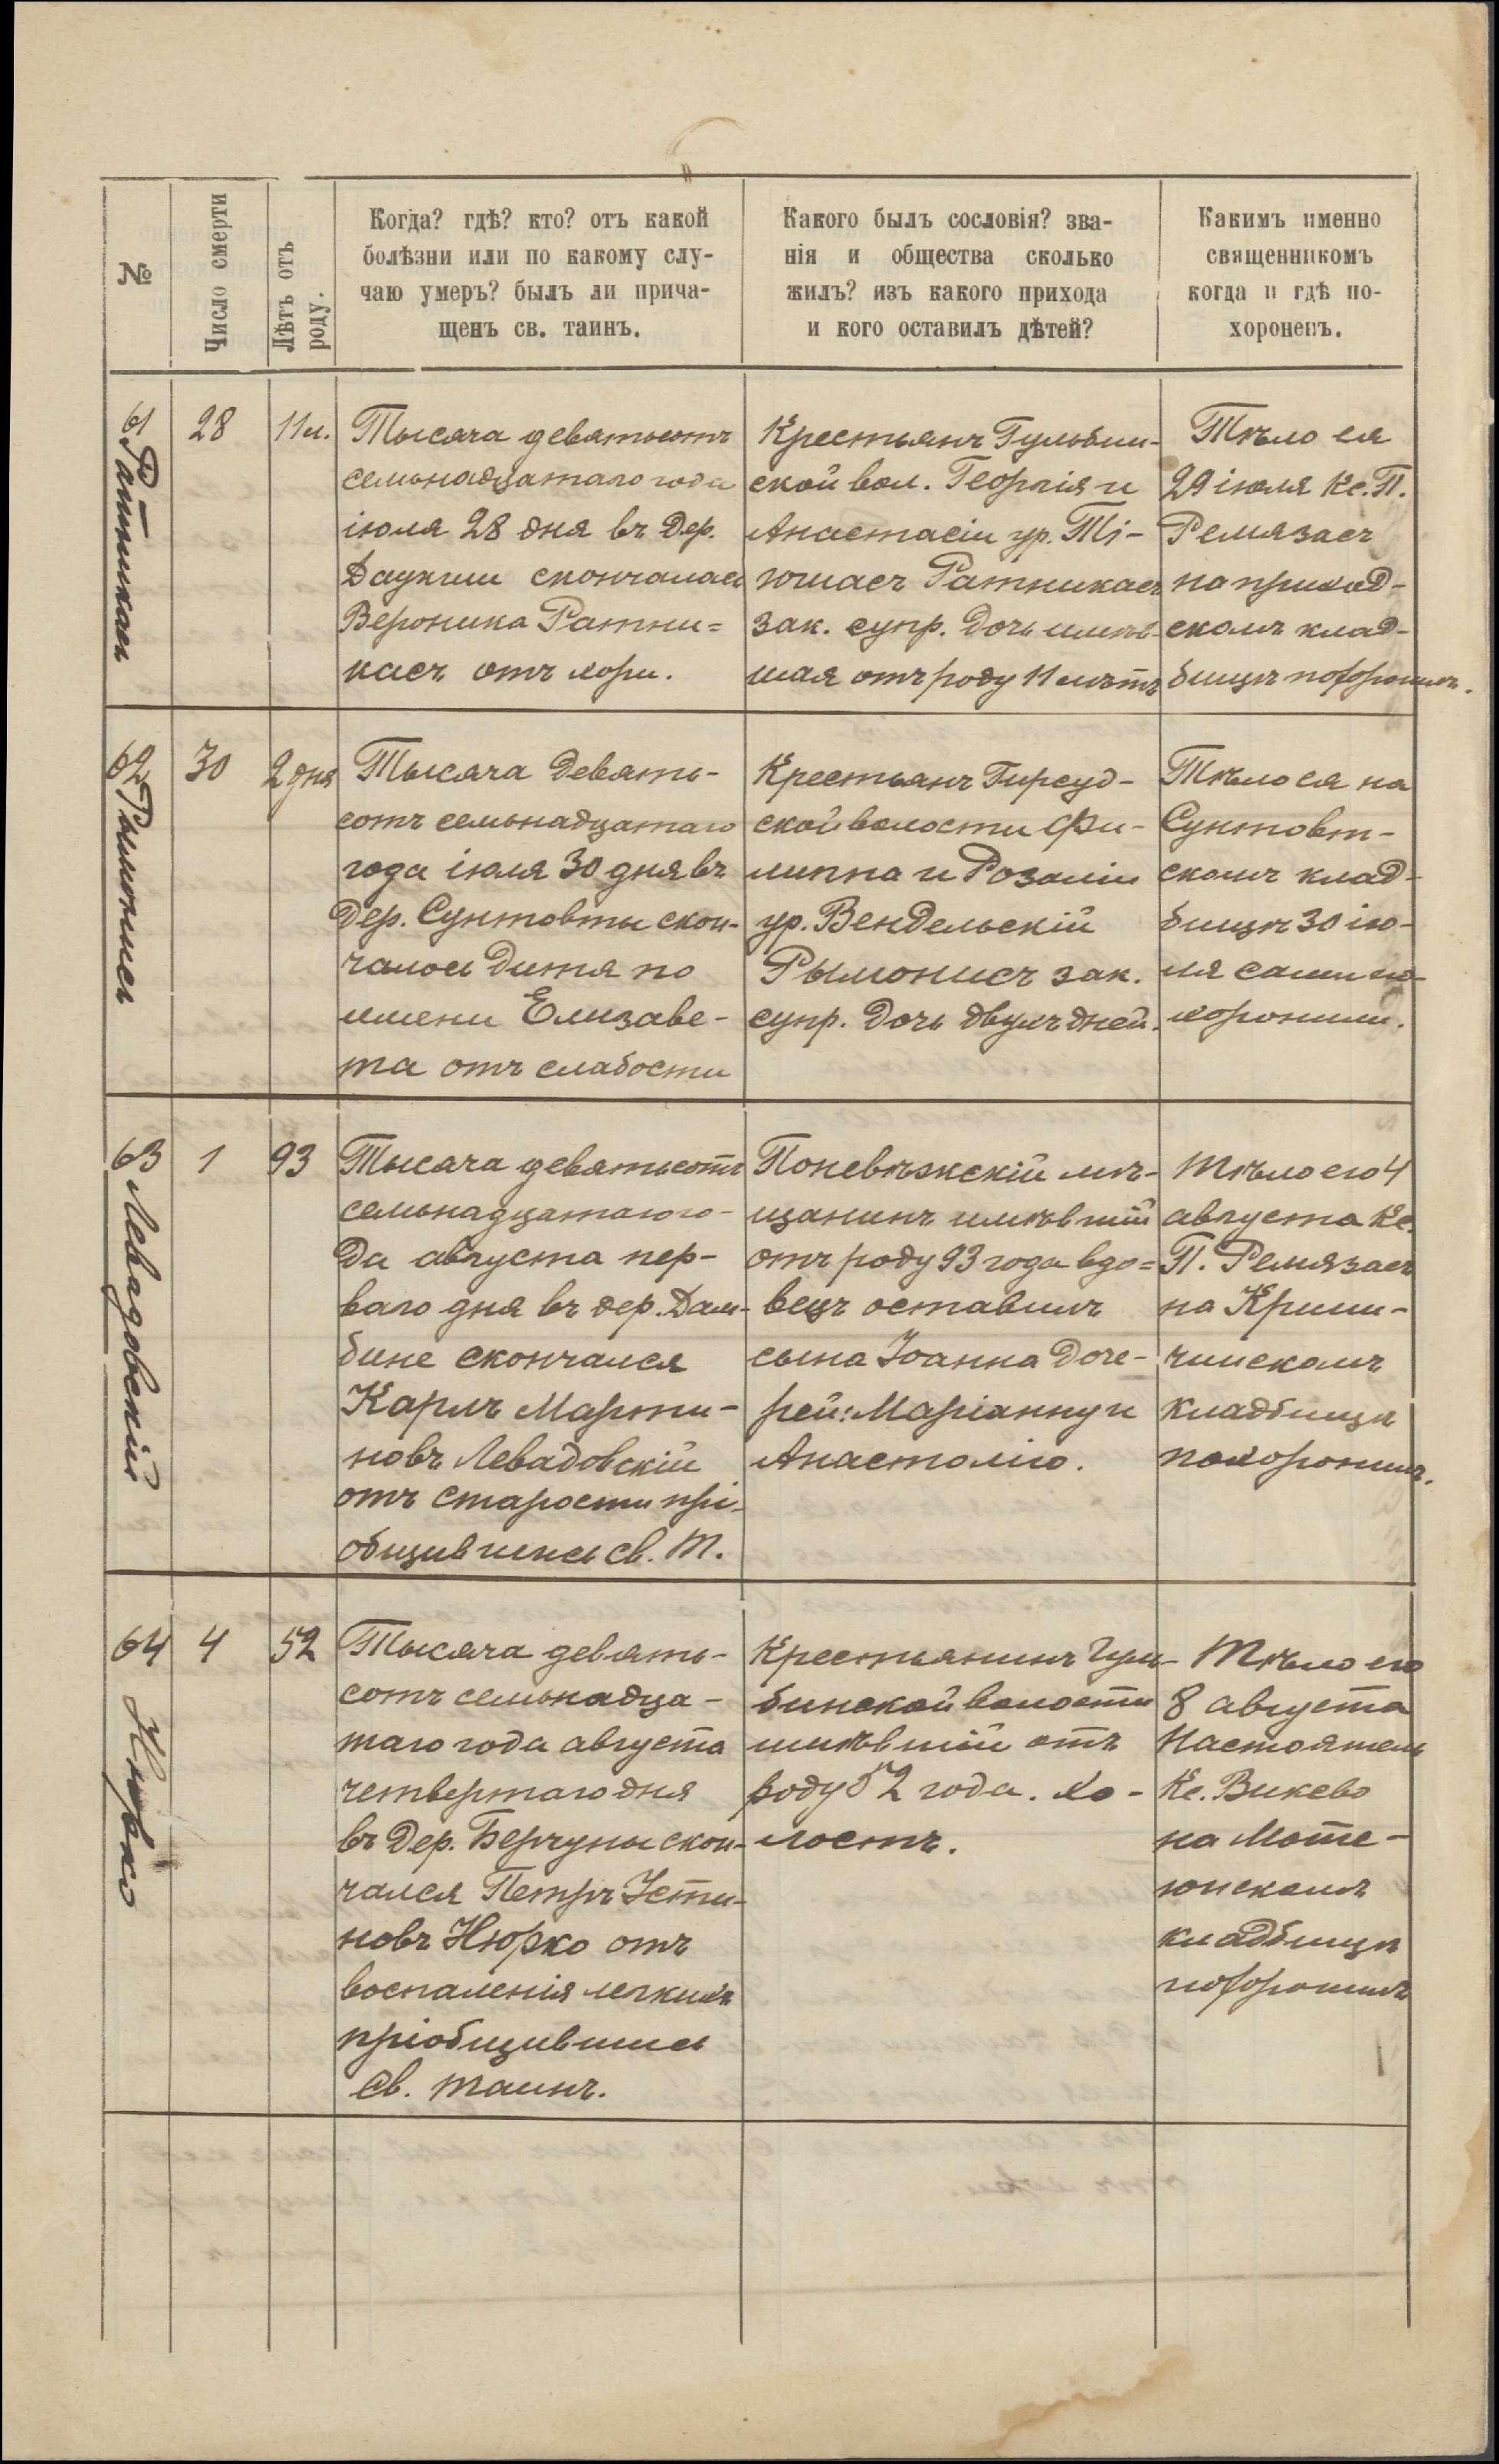 №
Число смерти
Лѣтъ отъ
роду.
Когда? гдѣ? кто? отъ какой
болѣзни или по какому слу-
чаю умеръ? былъ ли прича-
щенъ св. таинъ.
Какого былъ сословія? зва-
нія и общества сколько
жилъ? изъ какого прихода
и кого оставилъ дѣтей?
Какимъ именно
священникомъ
когда и гдѣ по-
хороненъ.
61 Ратникасъ
28
11 л.
Тысяча девятьсотъ
семьнадцатаго года
іюля 28 дня въ дер.
Даукши скончалась
Вероника Ратни=
касъ отъ кори.
Крестьянъ Гульбин-
ской вол. Георгія и
Анастасіи ур. Ті-
юшасъ Ратникасъ
зак. супр. дочь имѣв-
шая отъ роду 11 лѣтъ
Тѣло ея
29 іюля Кс. П.
Ремязасъ
на приход-
скомъ клад-
бищѣ похоронилъ.
62 Рымонисъ
30
2 дня
Тысяча девять-
сотъ семьнадцатаго
года іюля 30 дня въ
дер. Сунтовты скон-
чалось дитя по
имени Елизаве-
та отъ слабости
Крестьянъ Гирсуд-
ской волости Фи-
липпа и Розаліи
ур. Вендельскій
Рымонисъ зак.
супр. дочь двухъ дней.
Тѣло ея на
Сунтовт-
скомъ клад-
бищѣ 30 ію-
ля сами по-
хоронили.
63 Левадовскій
1
93
Тысяча девятьсотъ
семьнадцатаго го-
да августа пер-
ваго дня въ дер. Дам-
бине скончался
Карлъ Марти-
новъ Левадовскій
отъ старости прі-
общившись св. Т.
Поневѣжскій мѣ-
щанинъ имѣвшій
отъ роду 93 года вдо=
вецъ оставилъ
сына Іоанна доче-
рей: Маріанну и
Анастолію.
Тѣло его 4
августа Кс.
П. Ремязасъ
на Крини-
чинскомъ
кладбищѣ
похоронилъ.
64 Нюрко
4
52
Тысяча девять-
сотъ семьнадца-
таго года августа
четвертаго дня
въ дер. Берчуны скон-
чался Петръ Усти-
новъ Нюрко отъ
воспаленія легкихъ
пріобщившись
св. таинъ.
Крестьянинъ Гуль-
бинской волости
имѣвшій отъ
роду 52 года. Хо-
лостъ.
Тѣло его
8 августа
Настоятель
Кс. Викево
на Моте-
юнскомъ
кладбищѣ
похоронилъ